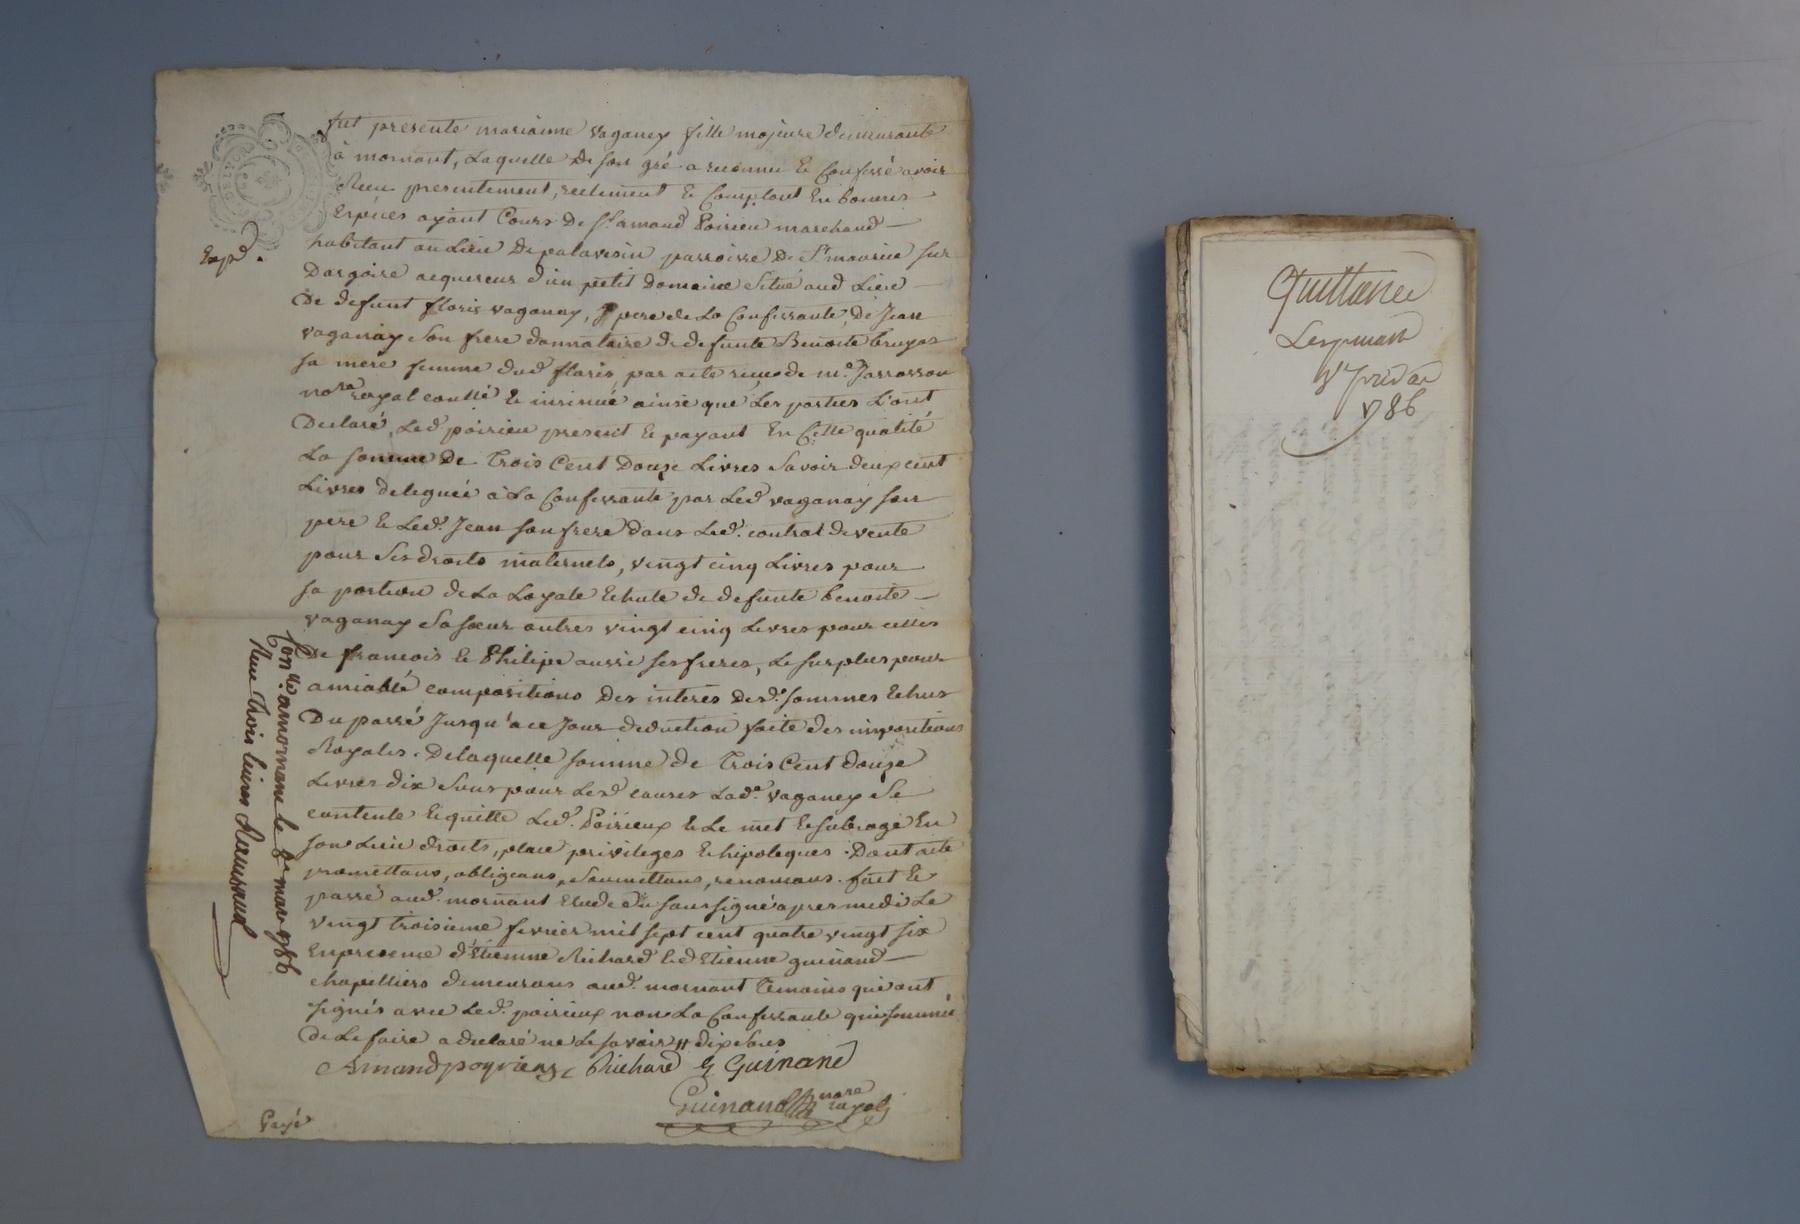 fut presente marianne vaganey fille majeure demeurante
à mornant, Laquelle De son gré a reconnu & Confessé avoir
Receu presentement, réelement & Comptant En bonnes
Espéces ayant Cours De Sr. amand Poirieu marchand
habitant au Lieu De palavesin parroisse De St. maurice sur
Dargoire acquereur d'un petit domaine situé aud Lieu
De defunt floris vaganay, pere de La Confessante, De Jean
vaganay son frere donnataire de defunte Benoite bruyas
sa mere femme dud floris par acte receu de me. Jarrosson
nore. royal controllé & insinué ainsi que Les parties L'ont
Declaré, Led poirieu present & payant En Cette qualité
La somme De Trois Cent Douze Livres savoir deux cent
Livres deleguée à La Confessante par Led vaganay son
pere & Led. Jean son frere dans Led. contrat de vente
pour ses droits maternels, vingt cinq Livres pour
sa portion de La Loyale Echute de defunte benoite
vaganay sa sœur autres vingt cinq Livres pour celles
de francois & Philipe aussi ses freres, Le surplus pour
amiable compositions Des interes desd. sommes Echus
Du passé Jusqu'a ce Jour deduction faite des impositions
Royales. De laquelle somme de Trois Cent douze
Livres dix sous pour Lesd causes Lade. vaganey se
contente & quitte Led. Poirieux & Le met & subroge En
son Lieu droits, place privileges & hipoteques. Dont acte
promettans, obligeans, soumettans, renoncans. fait &
passé aud. mornant Etude du soussigné apres midi Le
vingt troisieme fevrier mil sept cent quatre vingt six
En presence d'Etienne Richard & d'Etienne guinand
chapelliers demeurans aud. mornant Temoins qui ont
signés avec Led. poirieux non La Confessante qui sommée
De Le faire a declaré ne Le savoir # dix sous
Armand poyrieux Richard E Guinand
Guinand nore royal
Expd.
Conlé. a mornant le 8e mars 1786
Receu trois livres
Payé
Quittance
1786